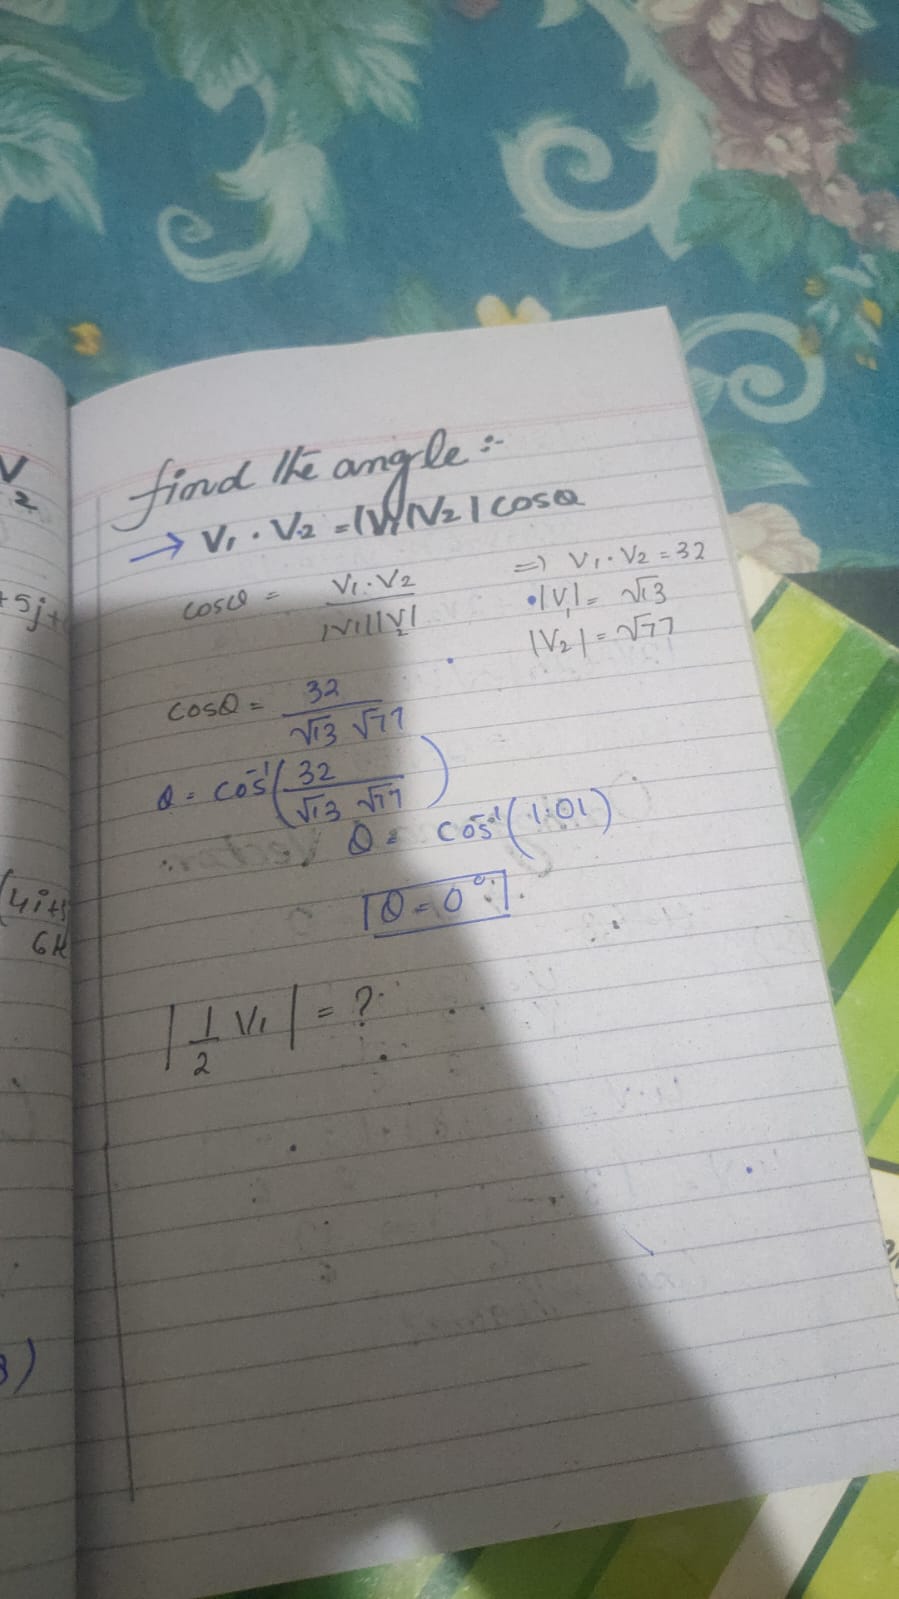 V
2
+5j+
(4i+5
6k
3)
find the angle:-
→ V₁ . V₂ = |V₁||V₂| cosθ
cosθ = V₁.V₂ / |V₁||V₂|
⇒ V₁.V₂ = 32
|V₁| = √13
|V₂| = √77
cosθ = 32 / √13 √77
θ = cos⁻¹(32 / √13 √77)
θ = cos⁻¹(1.01)
θ = 0°
|1/2 V₁| = ?